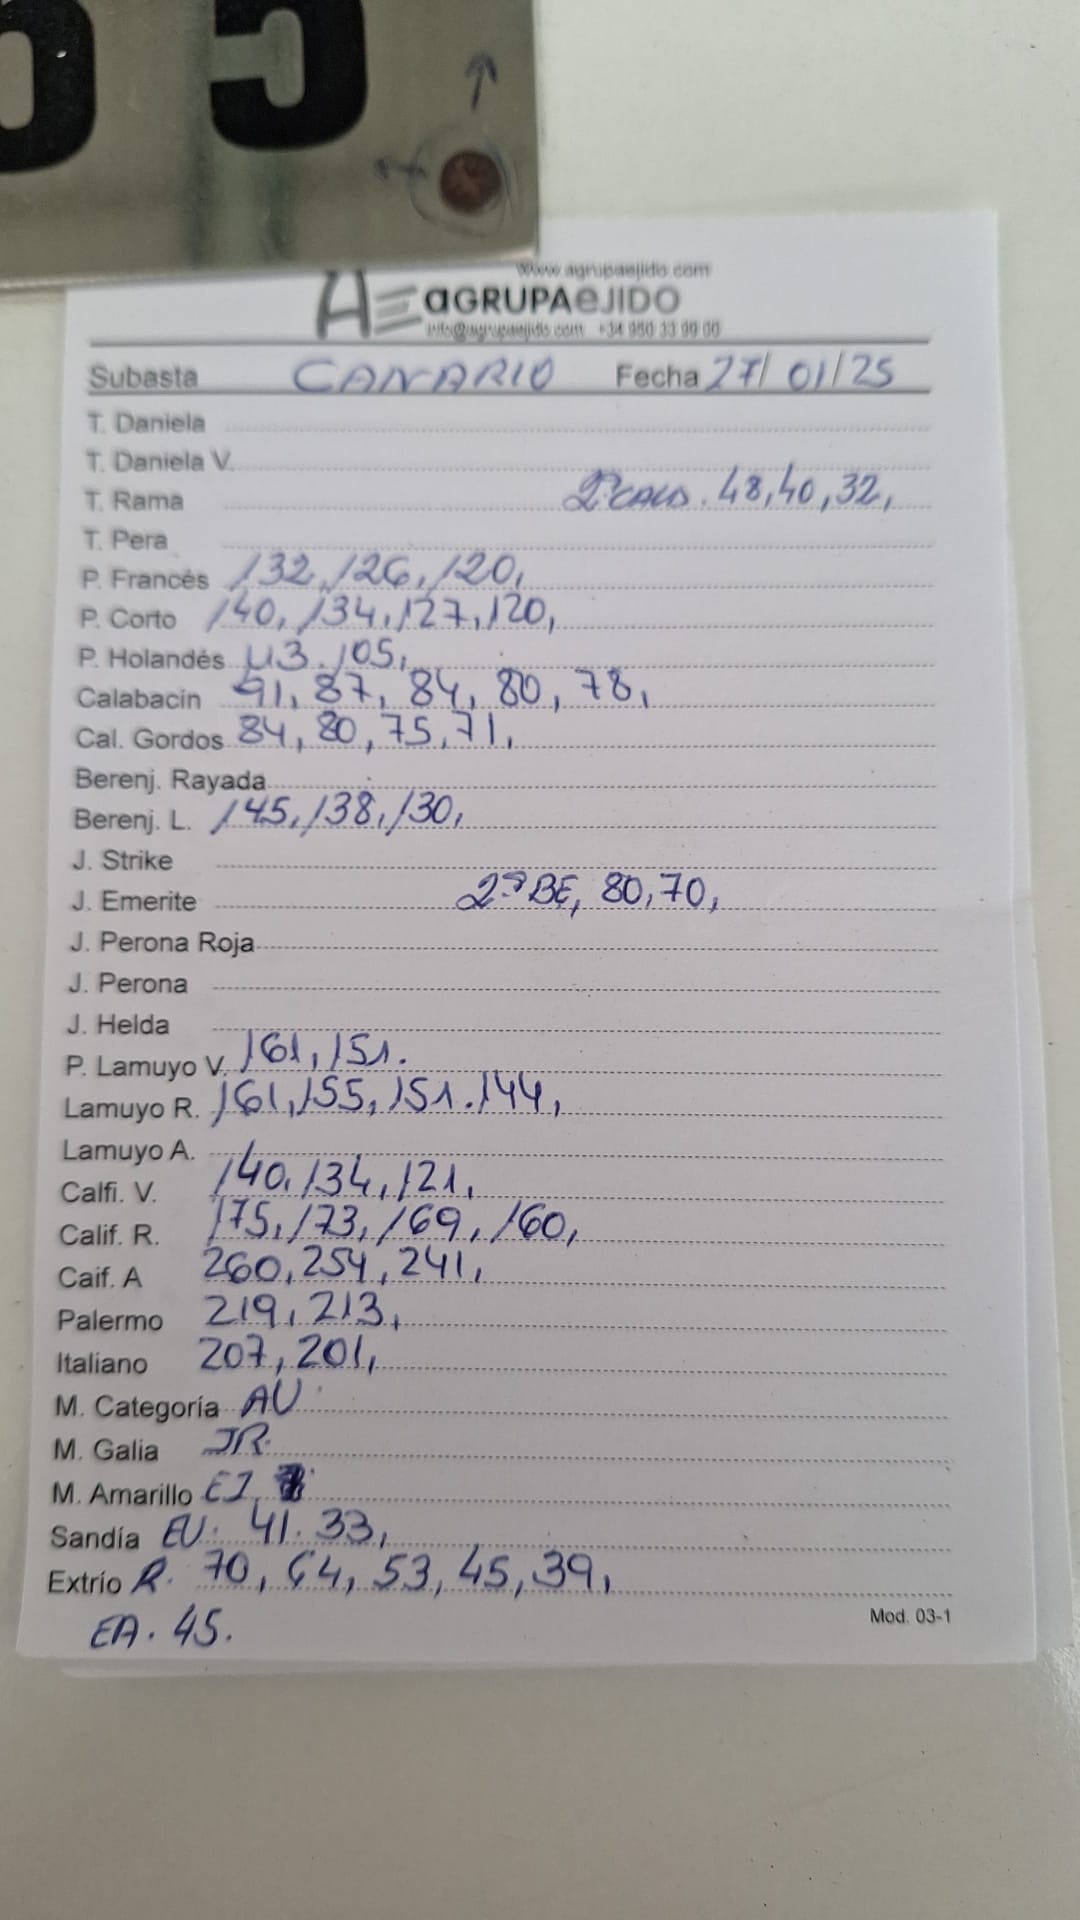 55
www.agrupaejido.com
AE aGRUPAeJIDO
info@agrupaejido.com +34 950 33 99 00
Subasta CANARIO Fecha 27/01/25
T. Daniela
T. Daniela V.
T. Rama 2ª CALB. 48, 40, 32,
T. Pera
P. Francés 132, 126, 120,
P. Corto 140, 134, 127, 120,
P. Holandés 113. 105,
Calabacín 91, 87, 84, 80, 78,
Cal. Gordos 84, 80, 75, 71,
Berenj. Rayada
Berenj. L. 145, 138, 130,
J. Strike
J. Emerite 2ª BE, 80, 70,
J. Perona Roja
J. Perona
J. Helda
P. Lamuyo V. 161, 151.
Lamuyo R. 161, 155, 151. 144,
Lamuyo A.
Calfi. V. 140, 134, 121,
Calif. R. 175, 173, 169, 160,
Caif. A 260, 254, 241,
Palermo 219, 213,
Italiano 207, 201,
M. Categoría AU
M. Galia JR.
M. Amarillo EJ
Sandía EU. 41. 33,
Extrío R. 70, 64, 53, 45, 39,
EA. 45.
Mod. 03-1